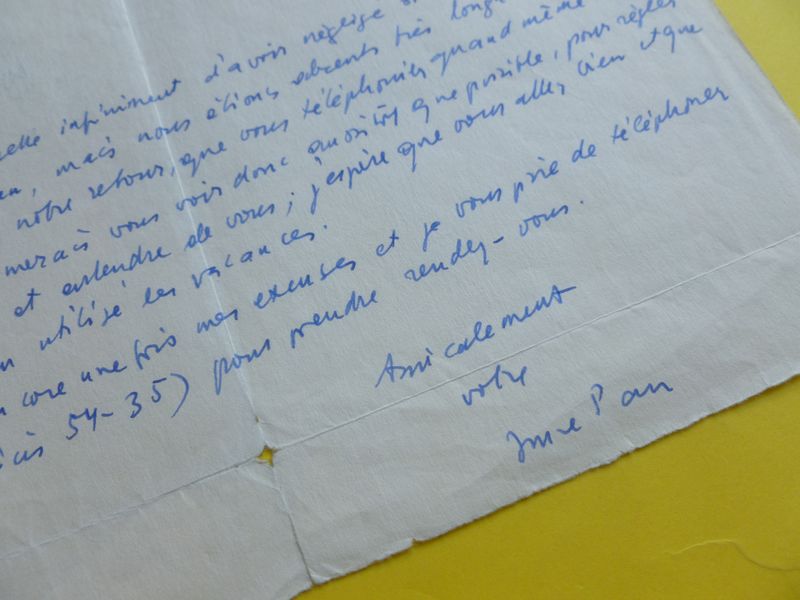 infiniment d'avoir négligé
, mais nous étions absents très long
notre retour, que vous téléphoniez quand même
merais vous voir donc aussitôt que possible, pour régler
et entendre de vous; j'espère que vous allez bien et que
utilisé les vacances.
core une fois mes excuses et je vous prie de téléphoner
54-35) pour prendre rendez-vous.
Amicalement
votre